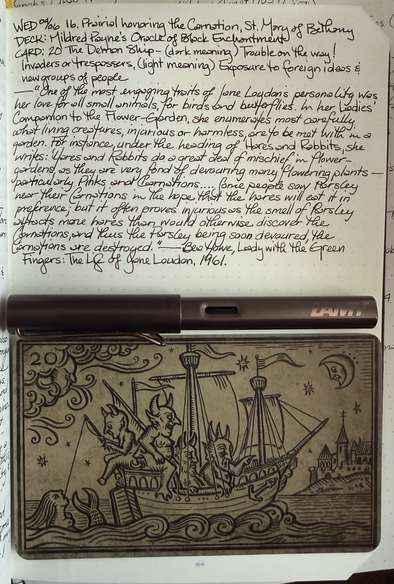 WED 16. Prairial honoring the Carnation, St. Mary of Bethany
DECK: Mildred Payne's Oracle of Black Enchantment
CARD: 20 The Demon Ship - (dark meaning) Trouble on the way!
Invaders or trespassers, (light meaning) Exposure to foreign ideas &
new groups of people
—"One of the most engaging traits of Jane Loudon's personality was
her love for all small animals, for birds and butterflies. In her Ladies'
Companion to the Flower-Garden, she enumerates most carefully
what living creatures, injurious or harmless, are to be met with in a
garden. For instance, under the heading of Hares and Rabbits, she
writes: Hares and Rabbits do a great deal of mischief in flower-
gardens, as they are very fond of devouring many flowering plants —
particularly Pinks and Carnations.... Some people say Parsley
near their Carnations in the hope that the hares will eat it in
preference; but it often proves injurious as the smell of Parsley
attracts more hares than would otherwise discover the
Carnations, and thus the Parsley being soon devoured, the
Carnations are destroyed." — Bea Howe, Lady with the Green
Fingers: The Life of Jane Loudon, 1961.
LAMY
20